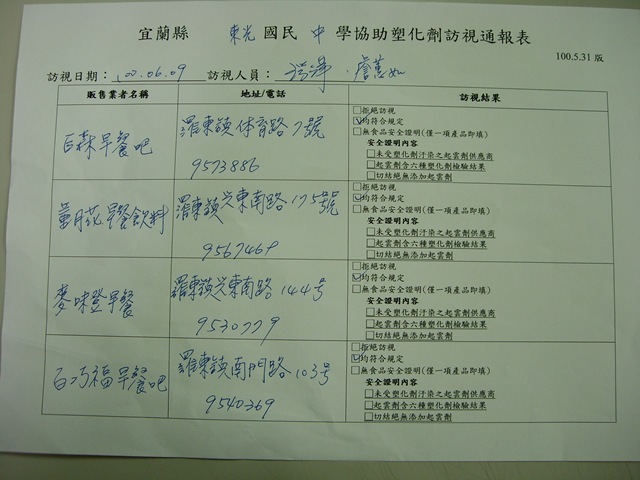 宜蘭縣 東光 國民 中 學協助塑化劑訪視通報表
100.5.31 版
訪視日期：100.06.09 訪視人員：
販售業者名稱 地址/電話 訪視結果
百森早餐吧
羅東鎮体育路7號
9573886
□拒絕訪視
☑均符合規定
□無食品安全證明(僅一項產品即填)
安全證明內容
□未受塑化劑汙染之起雲劑供應商
□起雲劑含六種塑化劑檢驗結果
□切結絕無添加起雲劑
早餐飲料
羅東鎮興東南路175號
9567469
□拒絕訪視
☑均符合規定
□無食品安全證明(僅一項產品即填)
安全證明內容
□未受塑化劑汙染之起雲劑供應商
□起雲劑含六種塑化劑檢驗結果
□切結絕無添加起雲劑
麥味登早餐
羅東鎮興東南路144号
9530779
□拒絕訪視
☑均符合規定
□無食品安全證明(僅一項產品即填)
安全證明內容
□未受塑化劑汙染之起雲劑供應商
□起雲劑含六種塑化劑檢驗結果
□切結絕無添加起雲劑
百巧福早餐吧
羅東鎮南門路103号
9540369
□拒絕訪視
☑均符合規定
□無食品安全證明(僅一項產品即填)
安全證明內容
□未受塑化劑汙染之起雲劑供應商
□起雲劑含六種塑化劑檢驗結果
□切結絕無添加起雲劑